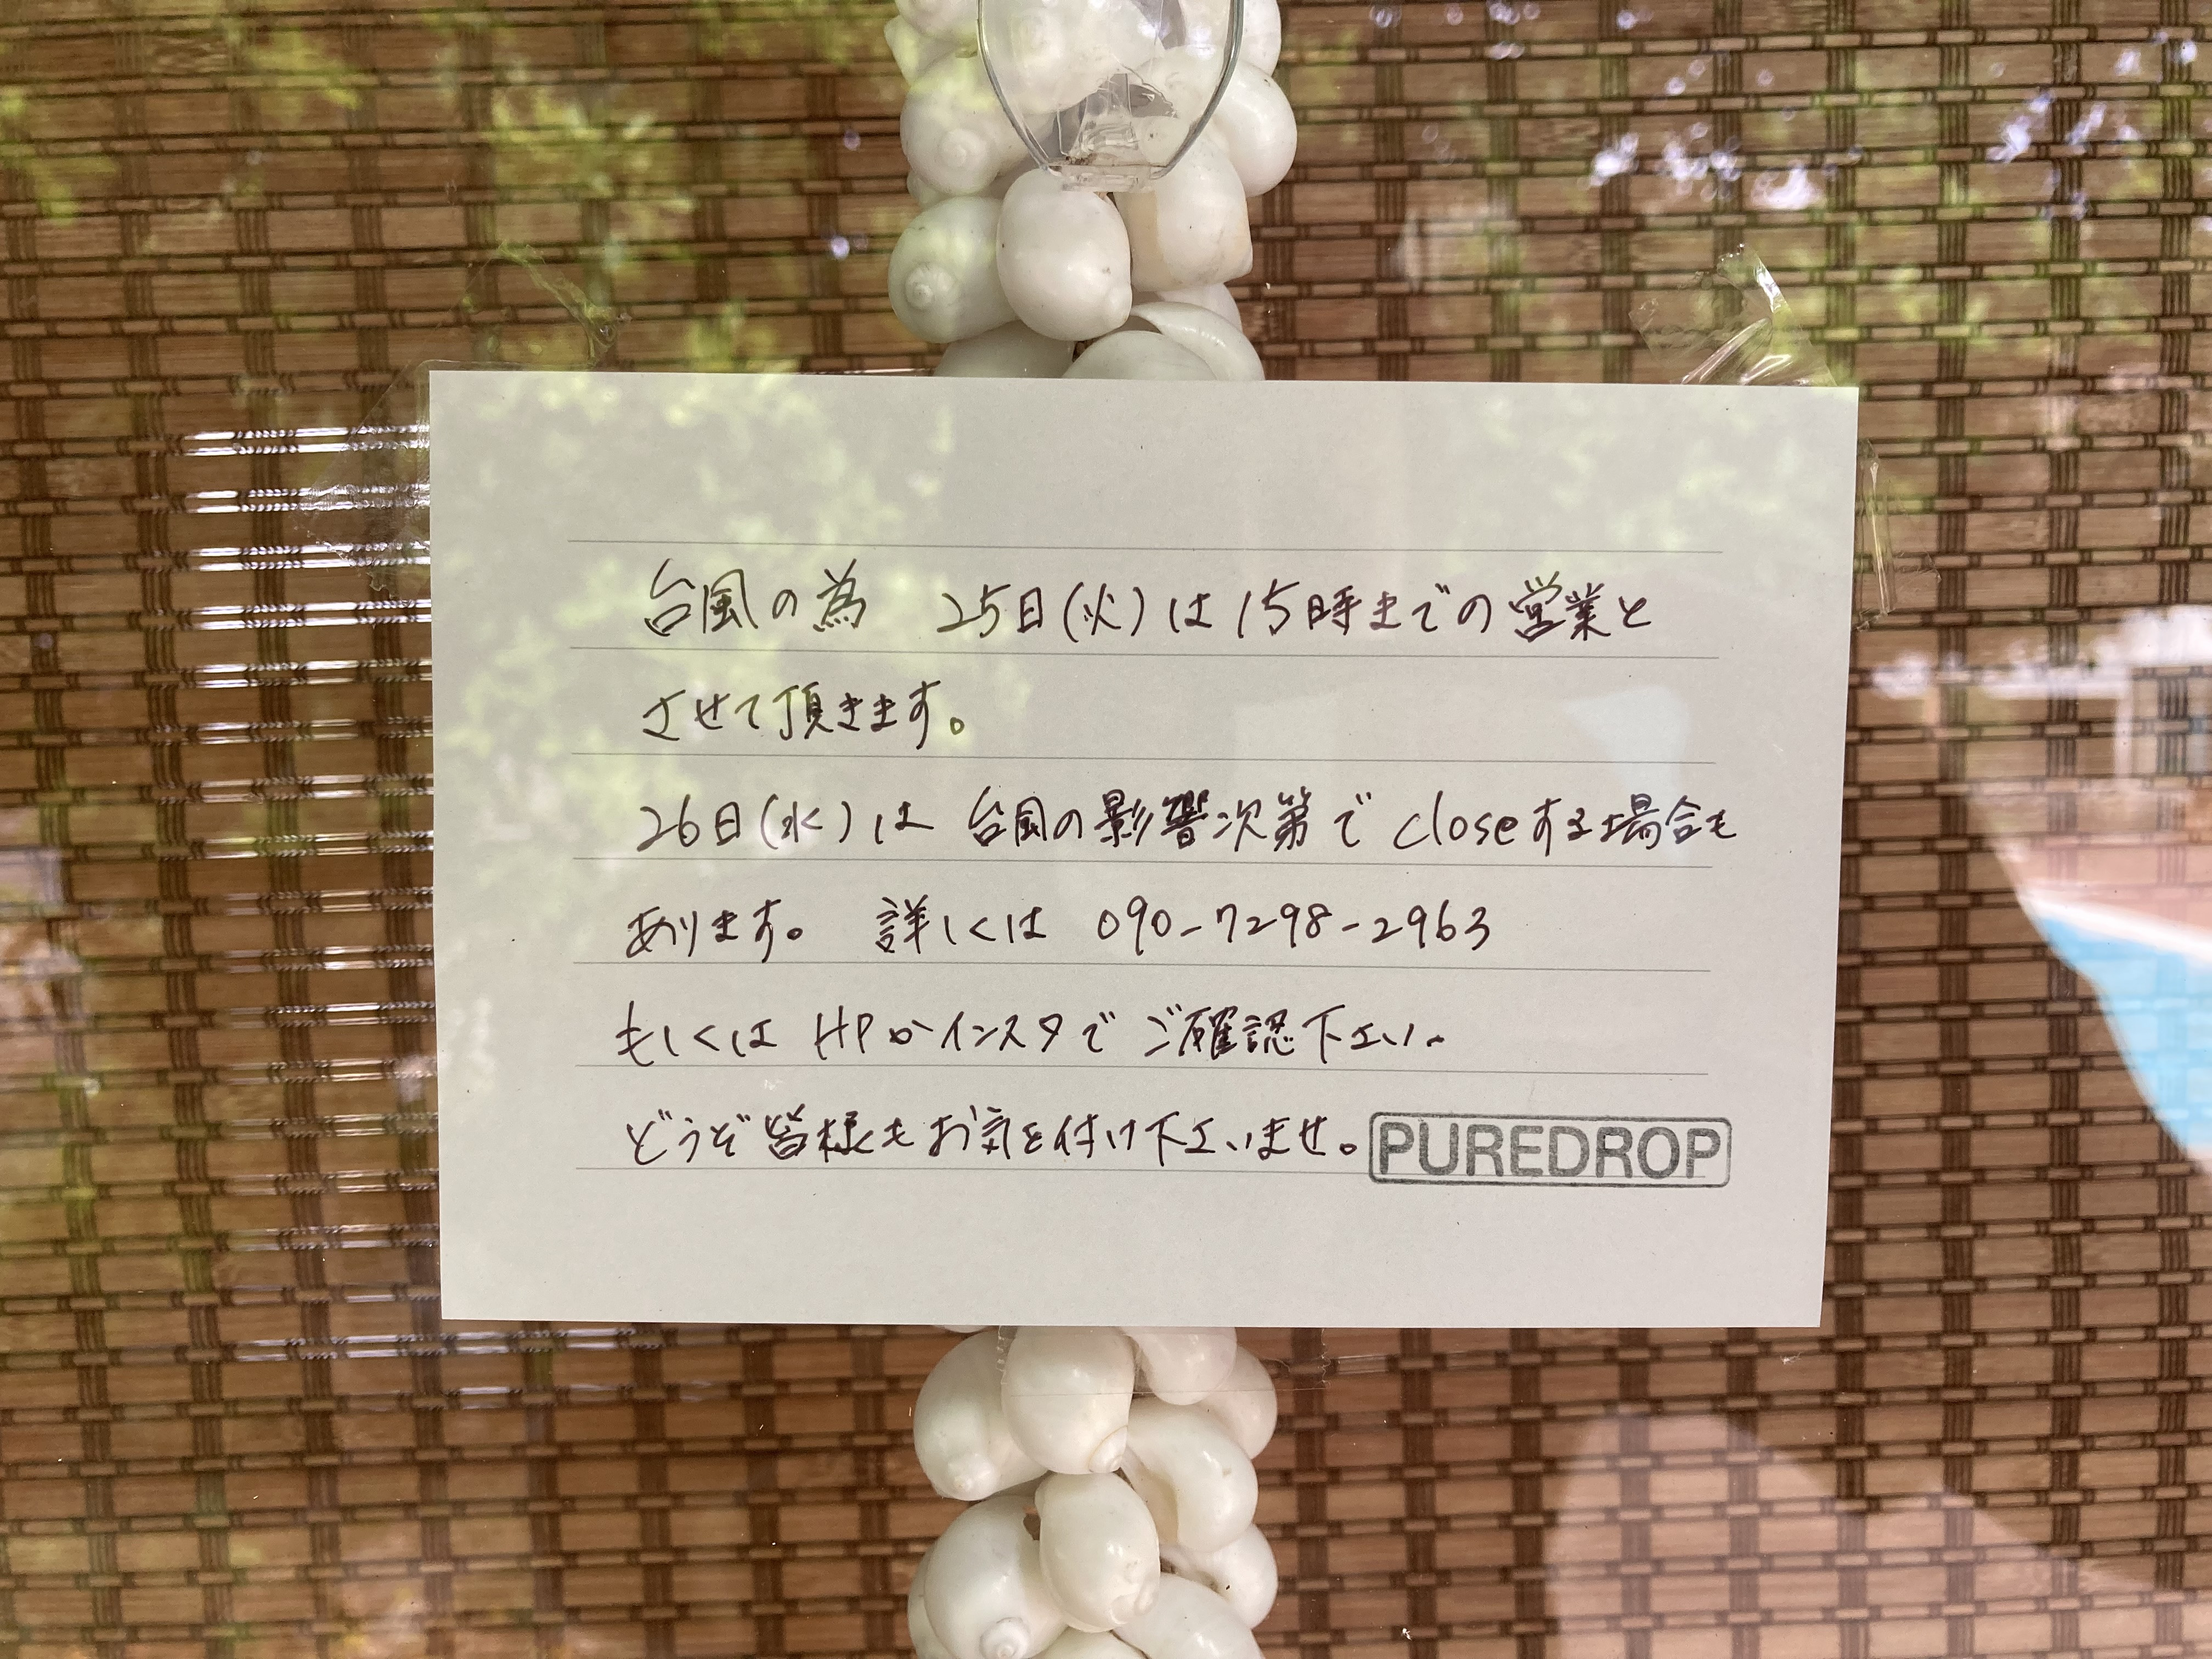 台風の為　25日(火)は15時までの営業と
させて頂きます。
26日(水)は 台風の影響次第で closeする場合も
あります。 詳しくは 090-7298-2963
もしくは HPかインスタで ご確認下さい。
どうぞ皆様もお気を付け下さいませ。 PUREDROP